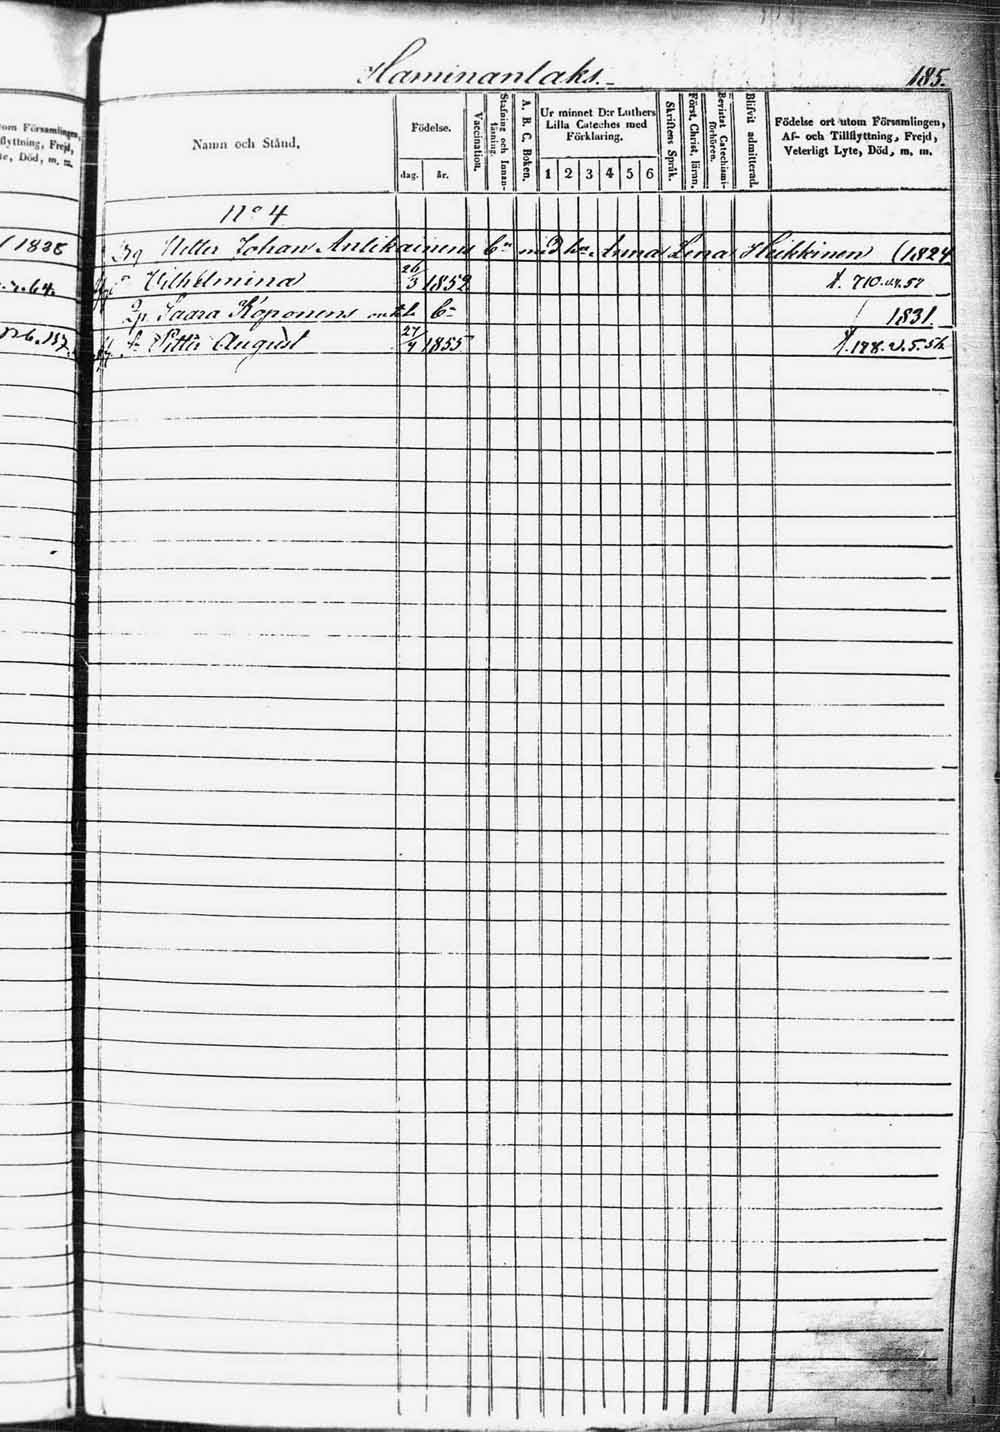 Haminanlaks. 185.
tom Församlingen,
flyttning, Frejd,
te, Död, m. m.
Namn och Stånd.
Födelse.
dag. år.
Vaccination.
Stafning och Innanläsning.
A. B. C. Boken.
Ur minnet D:r Luthers Lilla Cateches med Förklaring.
1 2 3 4 5 6
Skriftens Språk.
Först. Christ. läran.
Bevistat Catechismiförhören.
Blifvit admitterad.
Födelse ort utom Församlingen, Af- och Tillflyttning, Frejd, Veterligt Lyte, Död, m. m.
No 4
Johan Antikainens med Anna Lena Heikkinen (1824
Vilhelmina 26/3 1852 710.
Saara Koponens 1831.
Petter August 27/4 1855 178. v. 5. 56.